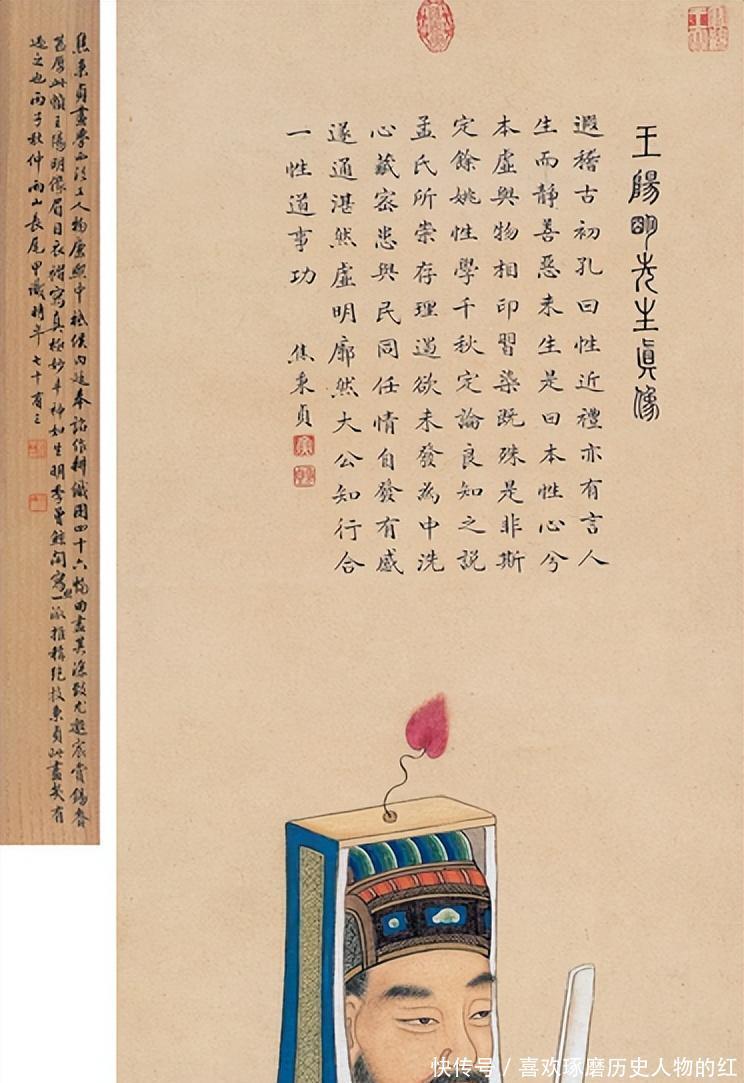 王陽明先生眞像
遐稽古初孔曰性近禮亦有言人
生而靜善惡未生是曰本性心兮
本虛與物相印習染既殊是非斯
定餘姚性學千秋定論良知之説
孟氏所崇存理遏欲未發為中洗
心藏密患與民同任情自發有感
遂通湛然虛明廓然大公知行合
一性道事功 焦秉貞
焦秉貞畫學西法工人物康熙中祗候内廷奉詔作耕織圖四十六幅曲盡其深致尤邀宸賞錫賚
甚厚此幀王陽明像眉目衣褶寫真極妙丰神如生明季曾鯨開寫照一派推稱絶技秉貞此畫有
過之也丙子秋仲雨山長尾甲識時年七十有三
快传号 / 喜欢琢磨历史人物的红